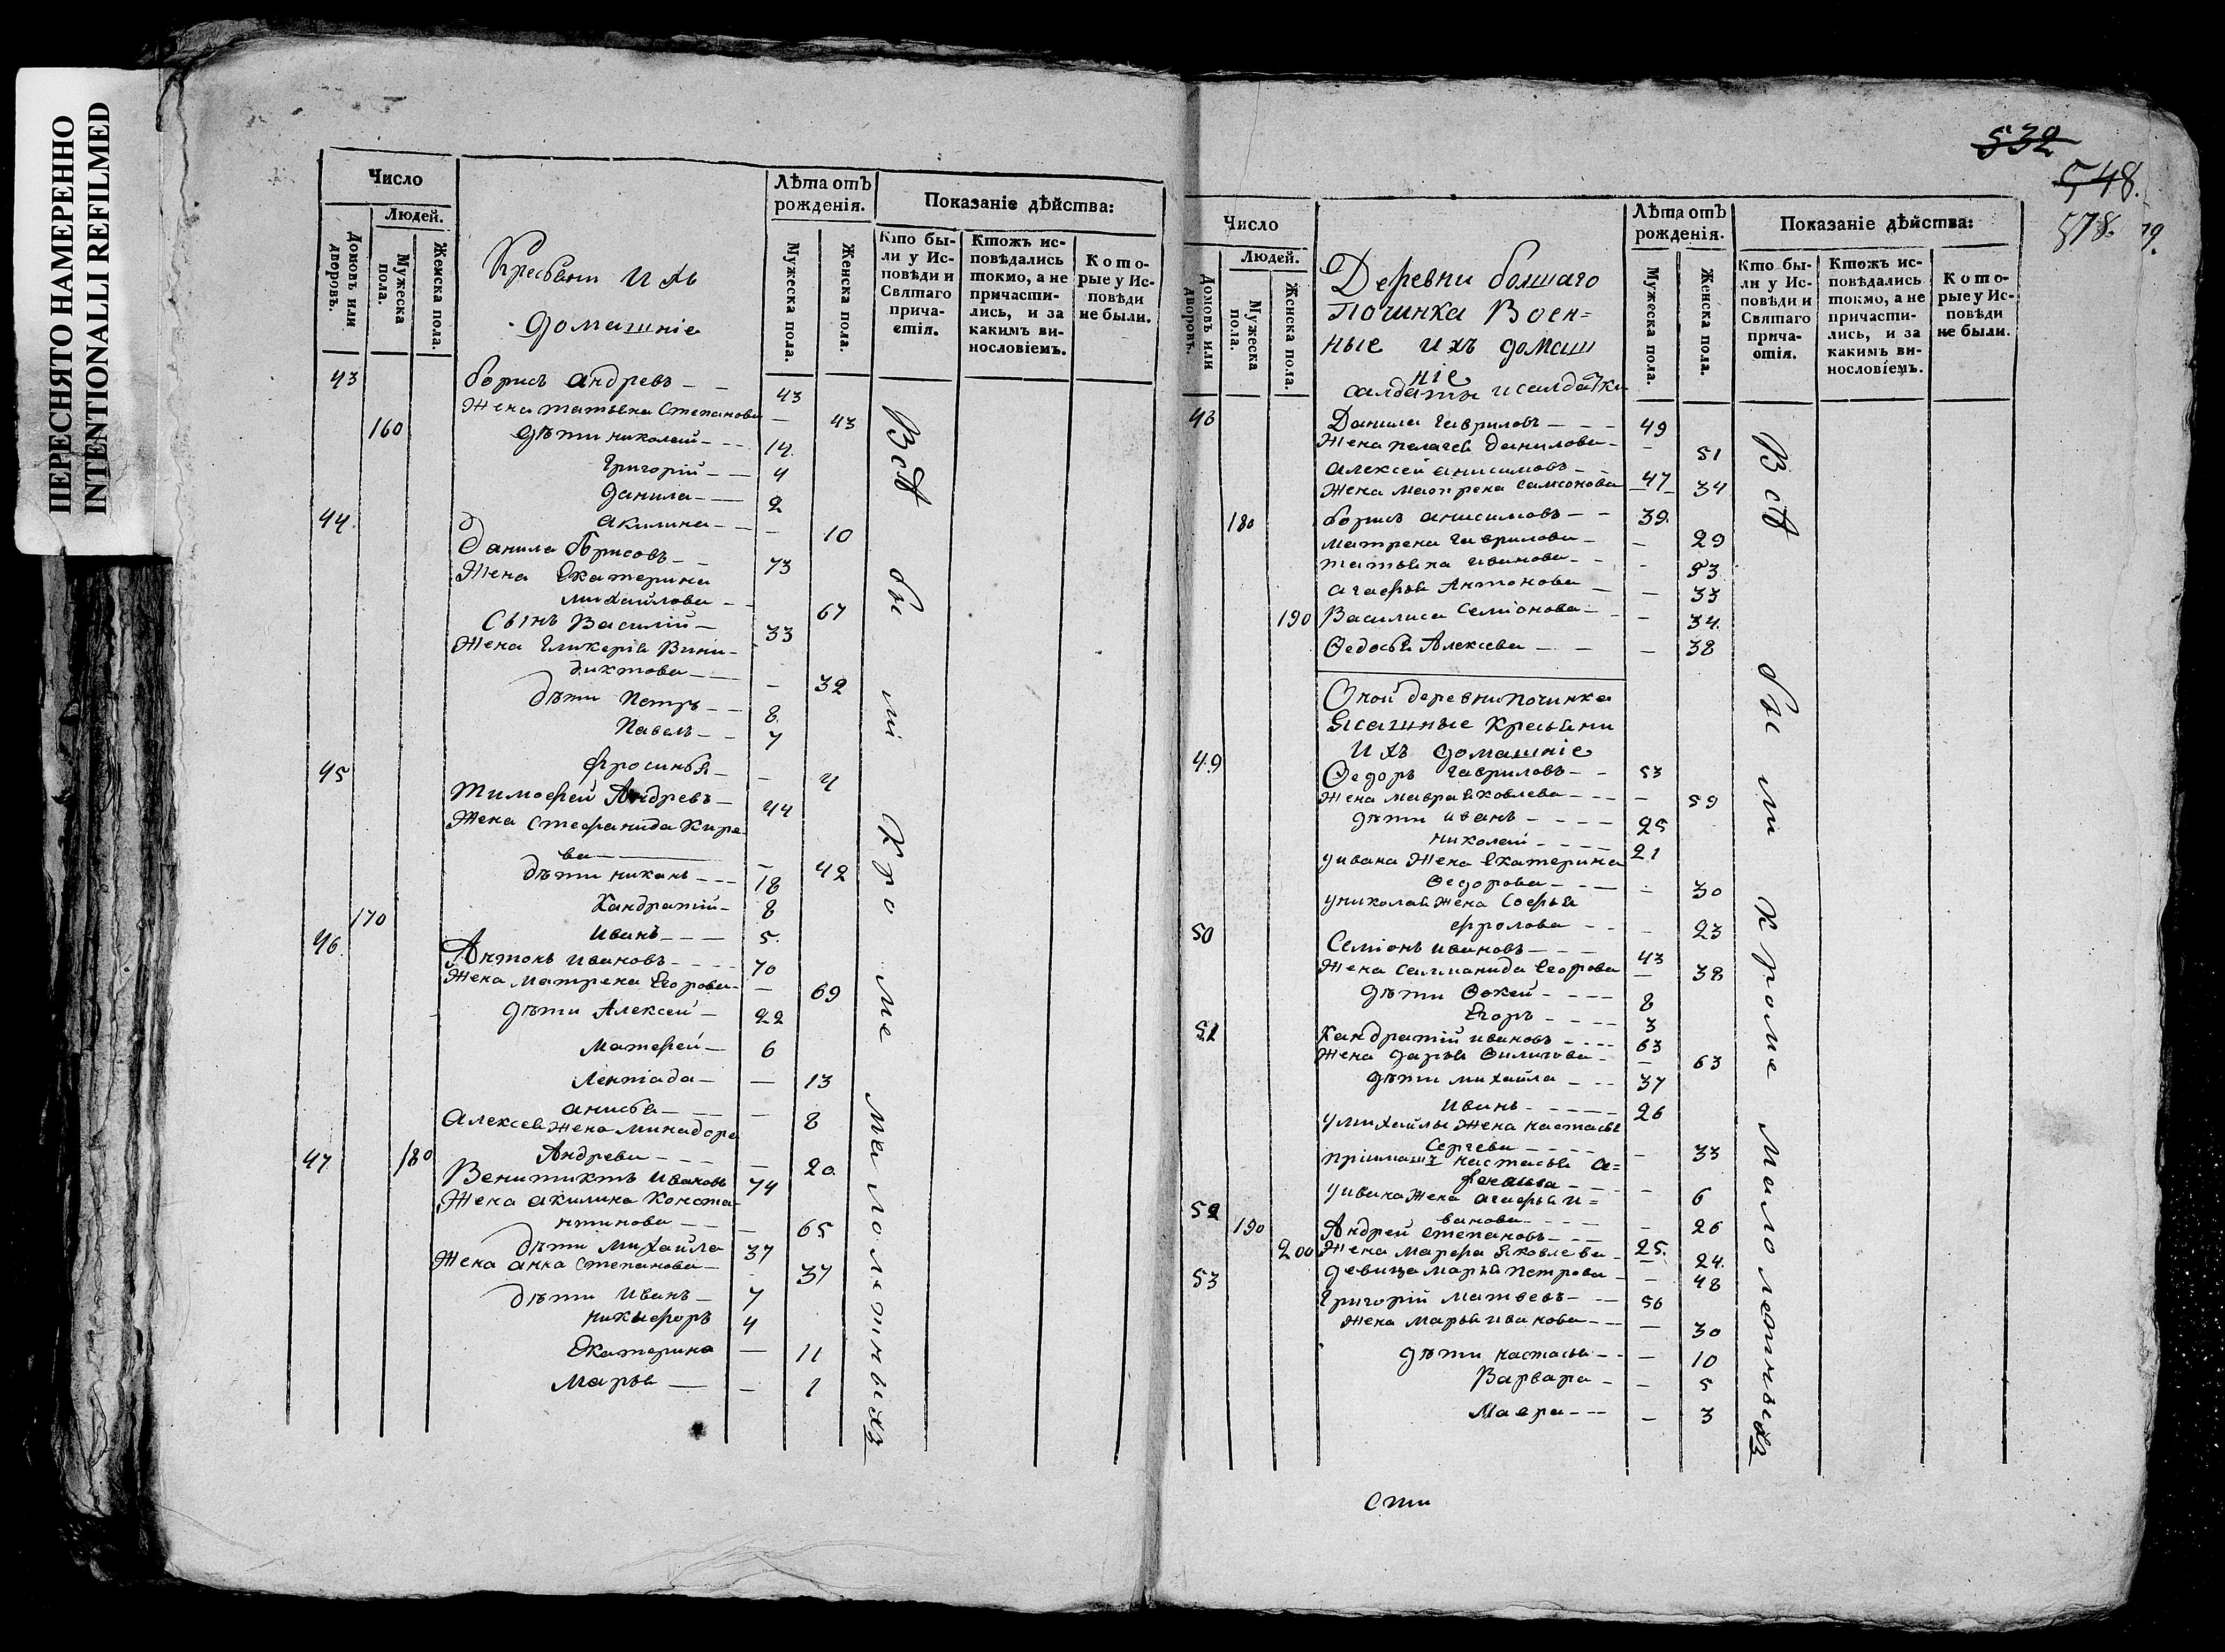 ПЕРЕСНЯТО НАМЕРЕННО
INTENTIONALLI REFILMED
Число
Людей.
Домовъ или дворовъ.
Мужеска пола.
Женска пола.
Кресьяни ихъ
домашніе
Лѣта отъ рожденія.
Мужеска пола.
Женска пола.
Показаніе дѣйства:
Кто бы-
ли у Ис-
повѣди и
Святаго
прича-
стія.
Ктожъ ис-
повѣдались
токмо, а не
причасти-
лись, и за
какимъ ви-
нословіемъ.
Кото-
рые у Ис-
повѣди
не были.
43 борисъ андревъ 43
Жена татьяна Степанова 43
160 дѣти николай 14
Григорій 4
данила 2
акилина 10
44 Данила Борисовъ 73
Жена Екатерина
михайлова 67
Сынъ Василій 33
Жена Гликерія Вини-
диктова 32
дѣти Петръ 8
Павелъ 7
Фросинья 4
45 Тимофей Андревъ 44
Жена Стефанида Кире
ва 42
дѣти никанъ 18
Кандратій 8
170 Иванъ 5
46 Антонъ ивановъ 70
Жена Матрена Егорова 69
дѣти Алексей 22
Матфей 6
Леніада 13
анисья 8
Алексея Жена Минадора
Андрева 20
47 180 Венитиктъ Ивановъ 74
Жена акилина Конста
нтинова 65
дѣти Михайла 37
Жена анна Степанова 37
дѣти Иванъ 7
никыфоръ 4
Екатерина 11
Марья 1
Всѣ были кроме малолетныхъ
532
548.
578. 79.
Число
Людей.
Домовъ или дворовъ.
Мужеска пола.
Женска пола.
Деревни болшаго
Починка Воен=
ные ихъ домаш
ніе
салдаты и салдатки
Лѣта отъ рожденія.
Мужеска пола.
Женска пола.
Показаніе дѣйства:
Кто бы-
ли у Ис-
повѣди и
Святаго
прича-
стія.
Ктожъ ис-
повѣдались
токмо, а не
причасти-
лись, и за
какимъ ви-
нословіемъ.
Кото-
рые у Ис-
повѣди
не были.
48 Данила Гавриловъ 49
Жена пелагея данилова 51
алексей анисимовъ 47
Жена Матрена Самсонова 34
180 борисъ анисимовъ 39
матрена Гаврилова 29
татьяна иванова 53
агафья Антонова 33
190 Василиса Семіонова 34
Ѳедосья Алексева 38
Оной деревни починка
Ясашные Кресьяни
Ихъ домашніе
49 Ѳедоръ Гавриловъ 53
Жена мавра Яковлева 59
дѣти иванъ 25
николай 21
у ивана Жена Екатерина
Ѳедорова 30
у николая Жена Софья
фролова 23
50 Семіонъ ивановъ 43
Жена Саломанида Егорова 38
дѣти Ѳокей 8
Егоръ 3
51 Кандратій ивановъ 63
Жена дарья Ѳилипова 63
дѣти михайла 37
Иванъ 26
у михайлы Жена настасья
Сергева 33
пріимашъ настасья а=
6
у ивана Жена агафья и=
ванова 26
52 190 Андрей Степановъ 25
200 Жена Марфа Яковлева 24
девица Марья Петрова 48
53 Григорій Матвевъ 56
Жена Марья иванова 30
дѣти настасья 10
Варвара 5
Мавра 3
Всѣ были кроме малолетныхъ
сти